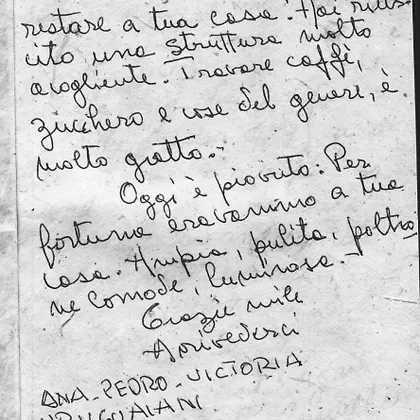 restare a tua casa. Hai rius-
cito una struttura molto
acogliente. Trovare caffè,
zucchero e cose del genere, è
molto gratto.-
Oggi è piovuto: Per
fortuna eravammo a tua
casa. Ampia, pulita, poltro
ne comode, luminosa.-
Grazie mile
Arrivederci
ANA-PEDRO-VICTORIA
URUGUAIANI